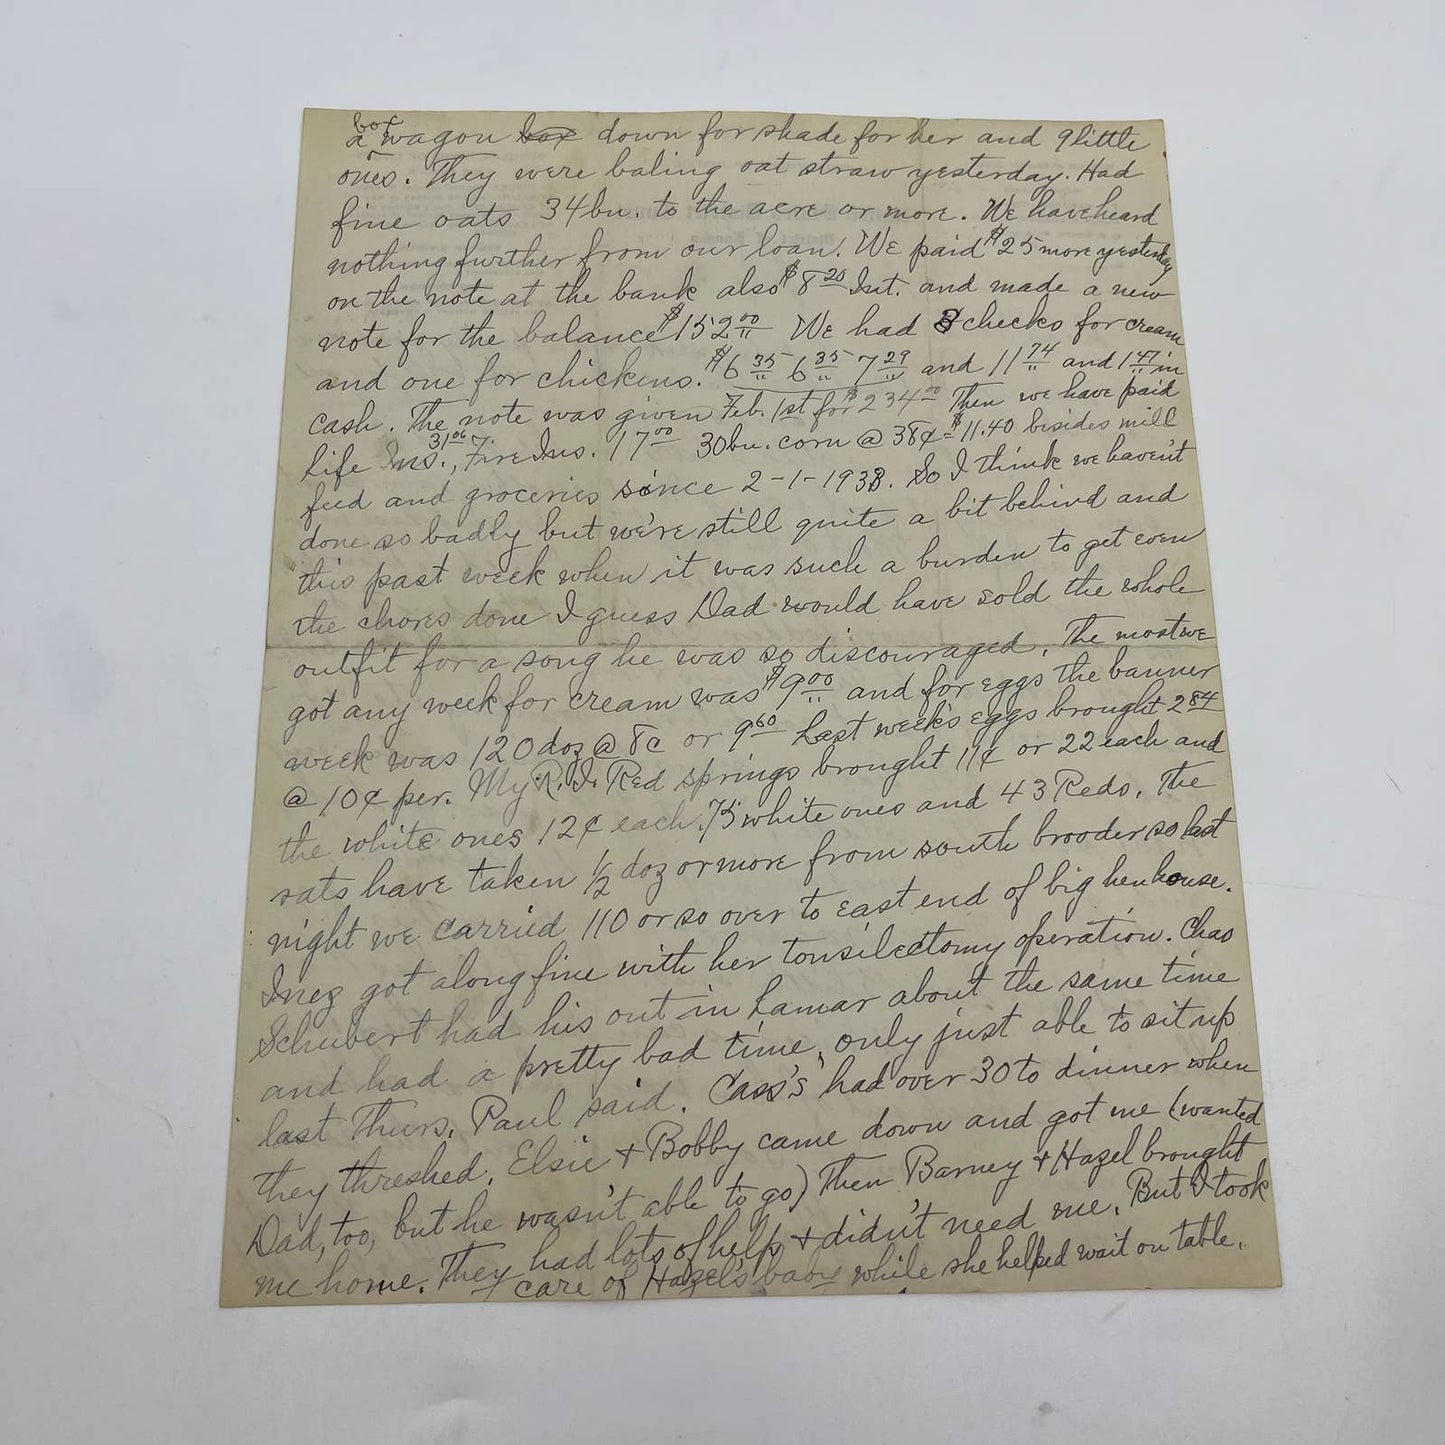 a box wagon box down for shade for her and 9 little
ones. They were baling oat straw yesterday. Had
fine oats 34 bu. to the acre or more. We have heard
nothing further from our loan. We paid $25 more yesterday
on the note at the bank also $8 20 Int. and made a new
note for the balance $152 00 We had 3 checks for cream
and one for chickens. $6 35 6 35 7 29 and 11 74 and 1 47 in
cash. The note was given Feb. 1st for $234 00 Then we have paid
Life Ins. 31 06, Fire Ins. 17 00 30 bu. corn @ 38¢ = $11.40 besides mill
feed and groceries since 2-1-1938. So I think we haven't
done so badly but we're still quite a bit behind and
this past week when it was such a burden to get even
the chores done I guess Dad would have sold the whole
outfit for a song he was so discouraged. The most we
got any week for cream was $9 00 and for eggs the banner
week was 120 doz @ 8¢ or 9 60 Last week's eggs brought 2 84
@ 10¢ per. My R.I. Red springs brought 11¢ or 22 each and
the white ones 12¢ each. 75 white ones and 43 Reds. The
rats have taken 1/2 doz or more from south brooder so last
night we carried 110 or so over to east end of big henhouse.
Inez got along fine with her tonsilectomy operation. Chas
Schubert had his out in Lamar about the same time
and had a pretty bad time, only just able to sit up
last Thurs. Paul said. Cass's had over 30 to dinner when
they threshed. Elsie + Bobby came down and got me (wanted
Dad, too, but he wasn't able to go) Then Barney + Hazel brought
me home. They had lots of help + didn't need me. But I took
care of Hazel's baby while she helped wait on table.